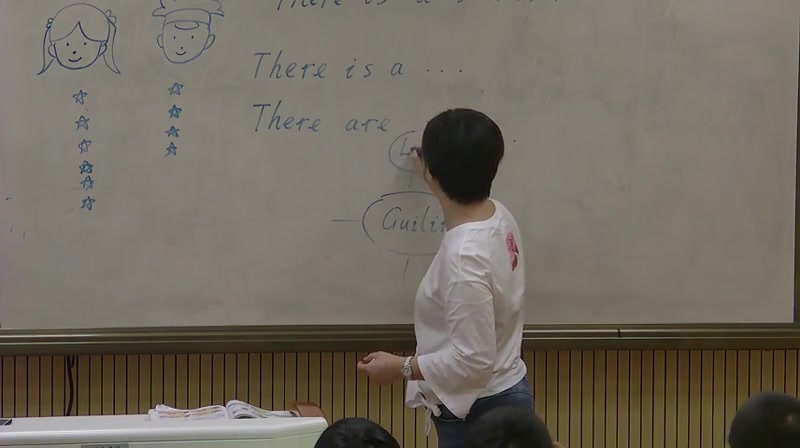 There is a
There is a ...
There are
Guilin